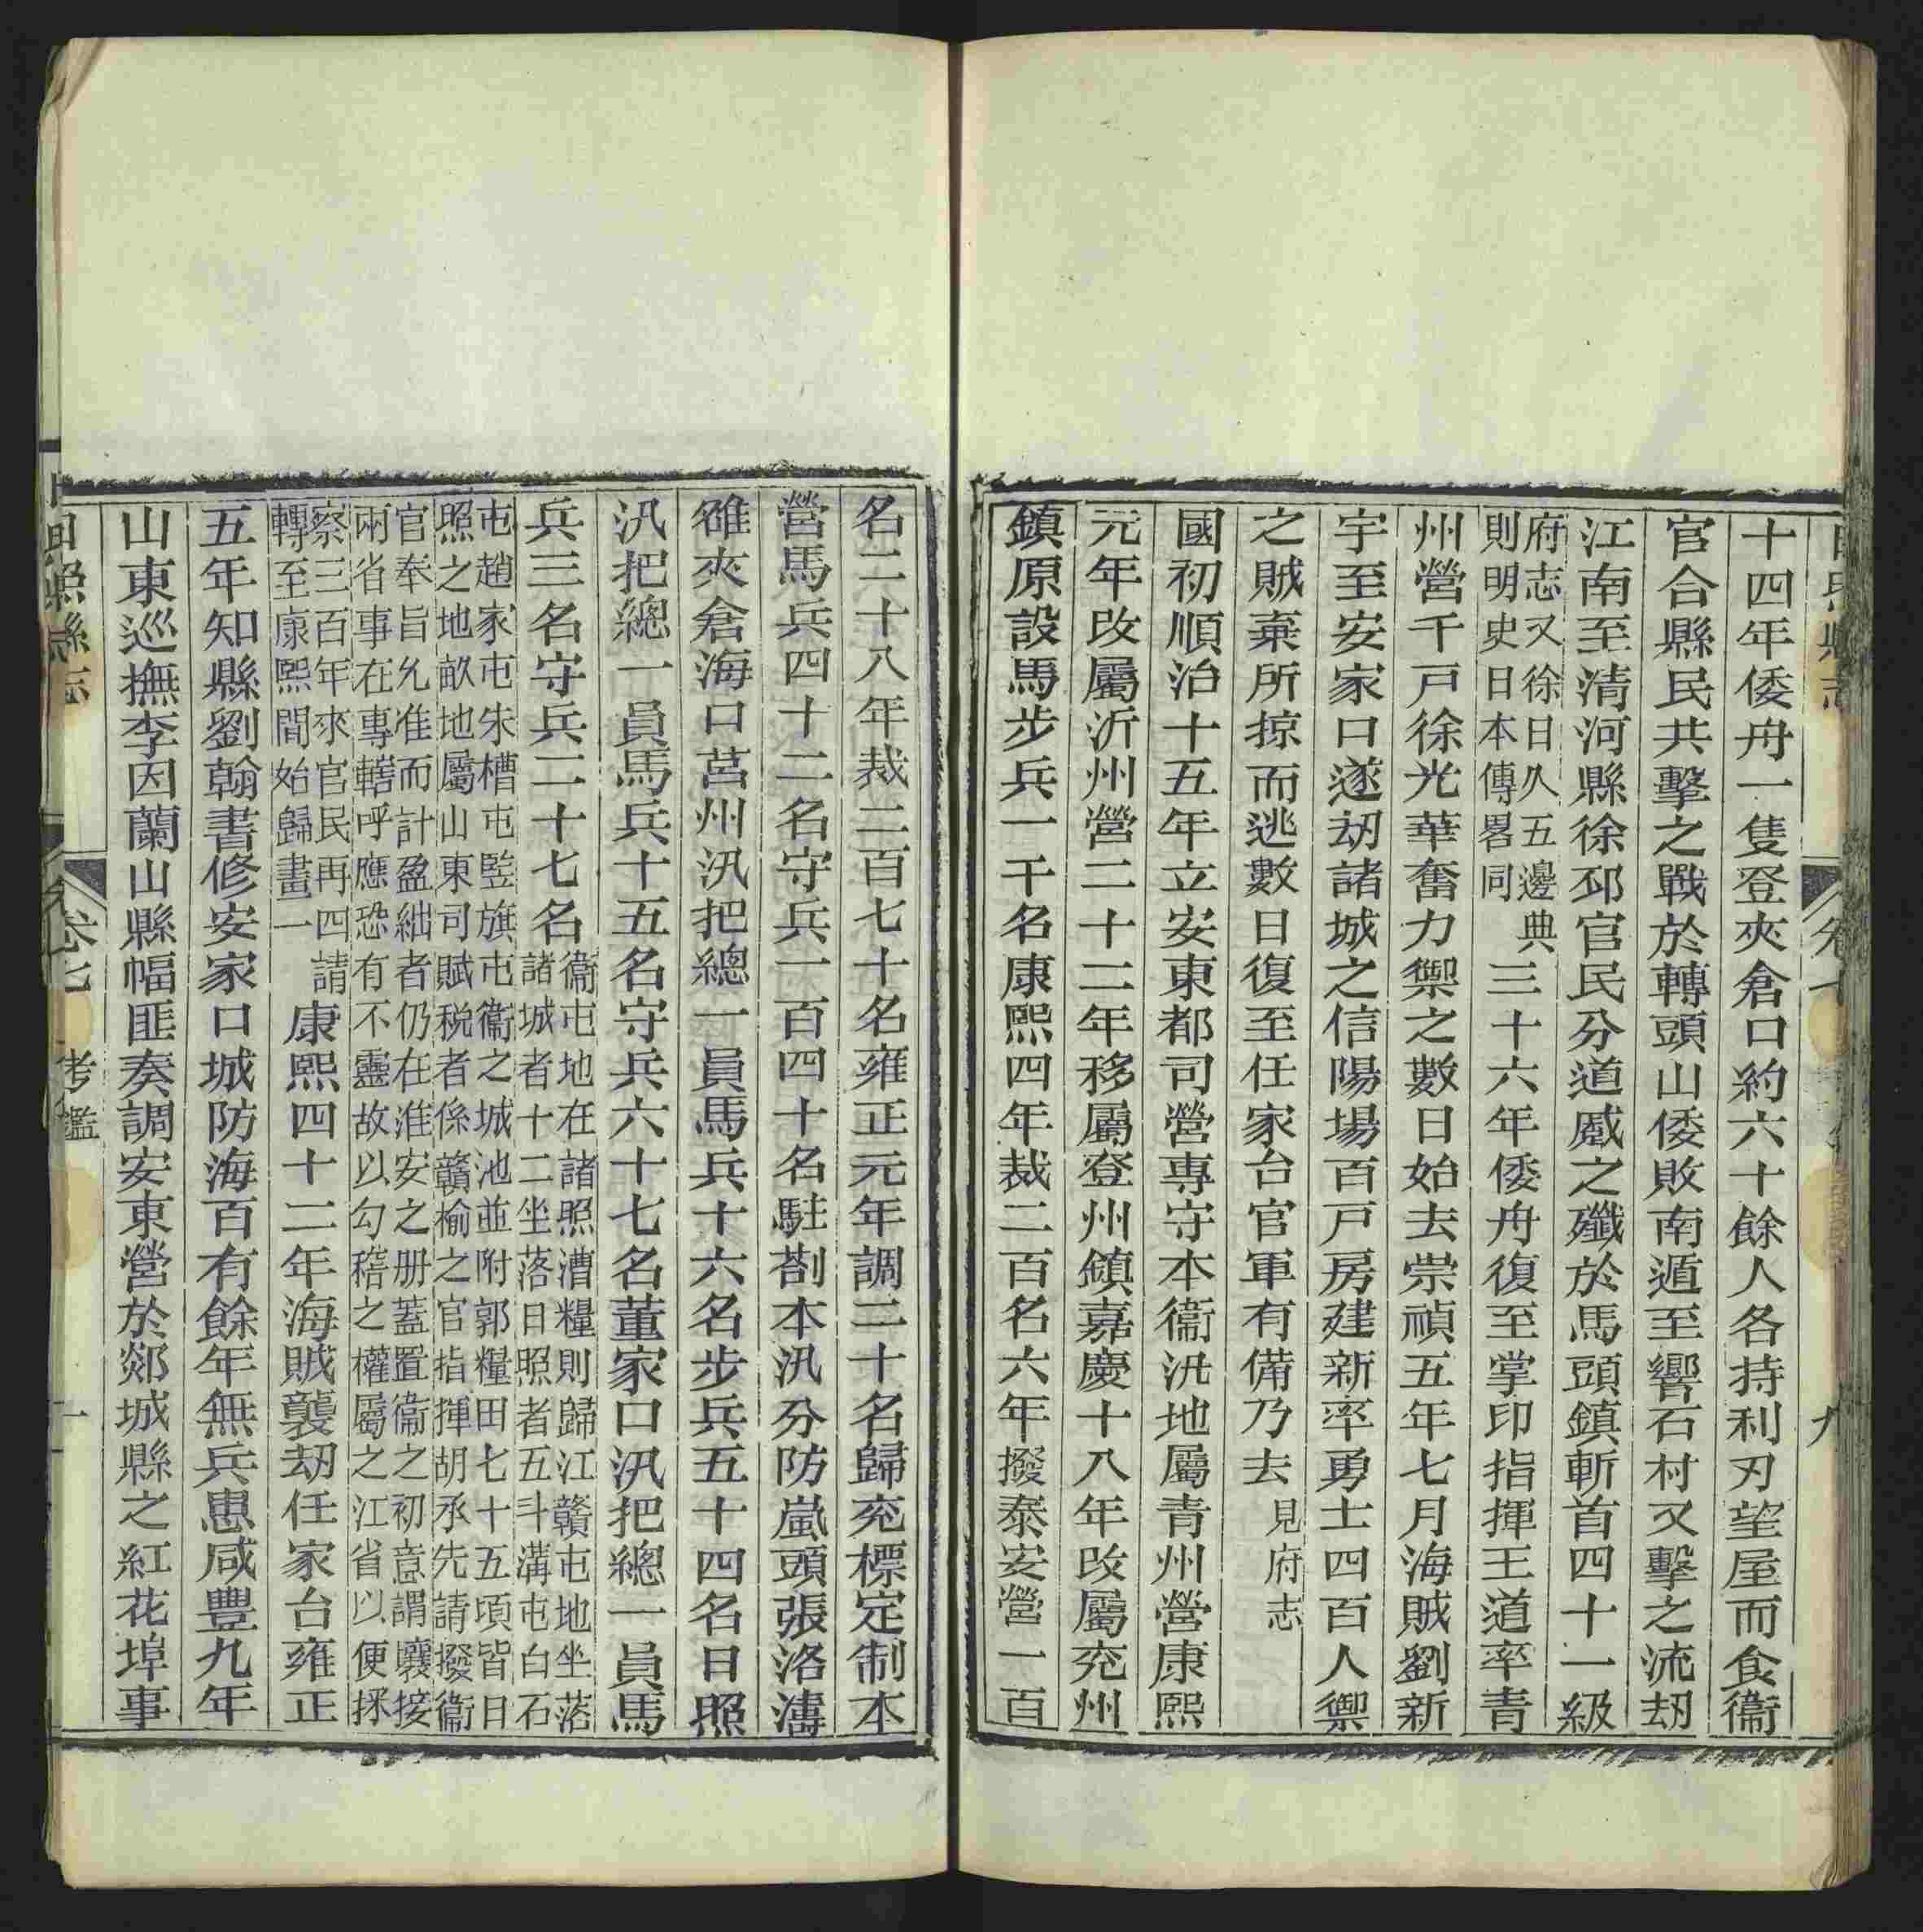 十四年倭舟一隻登夾倉口約六十餘人各持利刃望屋而食衞
官合縣民共擊之戰於轉頭山倭敗南遁至響石村又擊之流刼
江南至清河縣徐邳官民分道蹙之殲於馬頭鎮斬首四十一級
府志又徐日久五邊典
則明史日本傳畧同
三十六年倭舟復至掌印指揮王道卒青
州營千戸徐光華奮力禦之數日始去崇禎五年七月海賊劉新
宇至安家口遂刼諸城之信陽場百戸房建新率勇士四百人禦
之賊棄所掠而逃數日復至任家台官軍有備乃去見府志
國初順治十五年立安東都司營專守本衞汛地屬青州營康熙
元年改屬沂州營二十二年移屬登州鎮嘉慶十八年改屬兖州
鎮原設馬步兵一千名康熙四年裁二百名六年撥泰安營一百
名二十八年裁二百七十名雍正元年調二十名歸兖標定制本
營馬兵四十二名守兵一百四十名駐劄本汛分防嵐頭張洛濤
雒夾倉海口莒州汛把總一員馬兵十六名步兵五十四名日照
汛把總一員馬兵十五名守兵六十七名董家口汛把總一員馬
兵三名守兵二十七名
衞屯地在諸照漕糧則歸江贛屯地坐落
諸城者十二坐落日照者五斗溝屯白石
屯趙家屯朱槽屯監旗屯衞之城池並附郭糧田七十五頃皆日
照之地畝地屬山東司賦税者係贛榆之官指揮胡承先請撥衞
官奉旨允准而計盈絀者仍在淮安之册蓋置衞之初意謂壤接
兩省事在專轄呼應恐有不靈故以勾稽之權屬之江省以便採
察三百年來官民再四請
轉至康熙間始歸畫一
康熙四十二年海賊襲刼任家台雍正
五年知縣劉翰書修安家口城防海百有餘年無兵患咸豐九年
山東巡撫李因蘭山縣幅匪奏調安東營於郯城縣之紅花埠事
日照縣志
卷七
考鑑